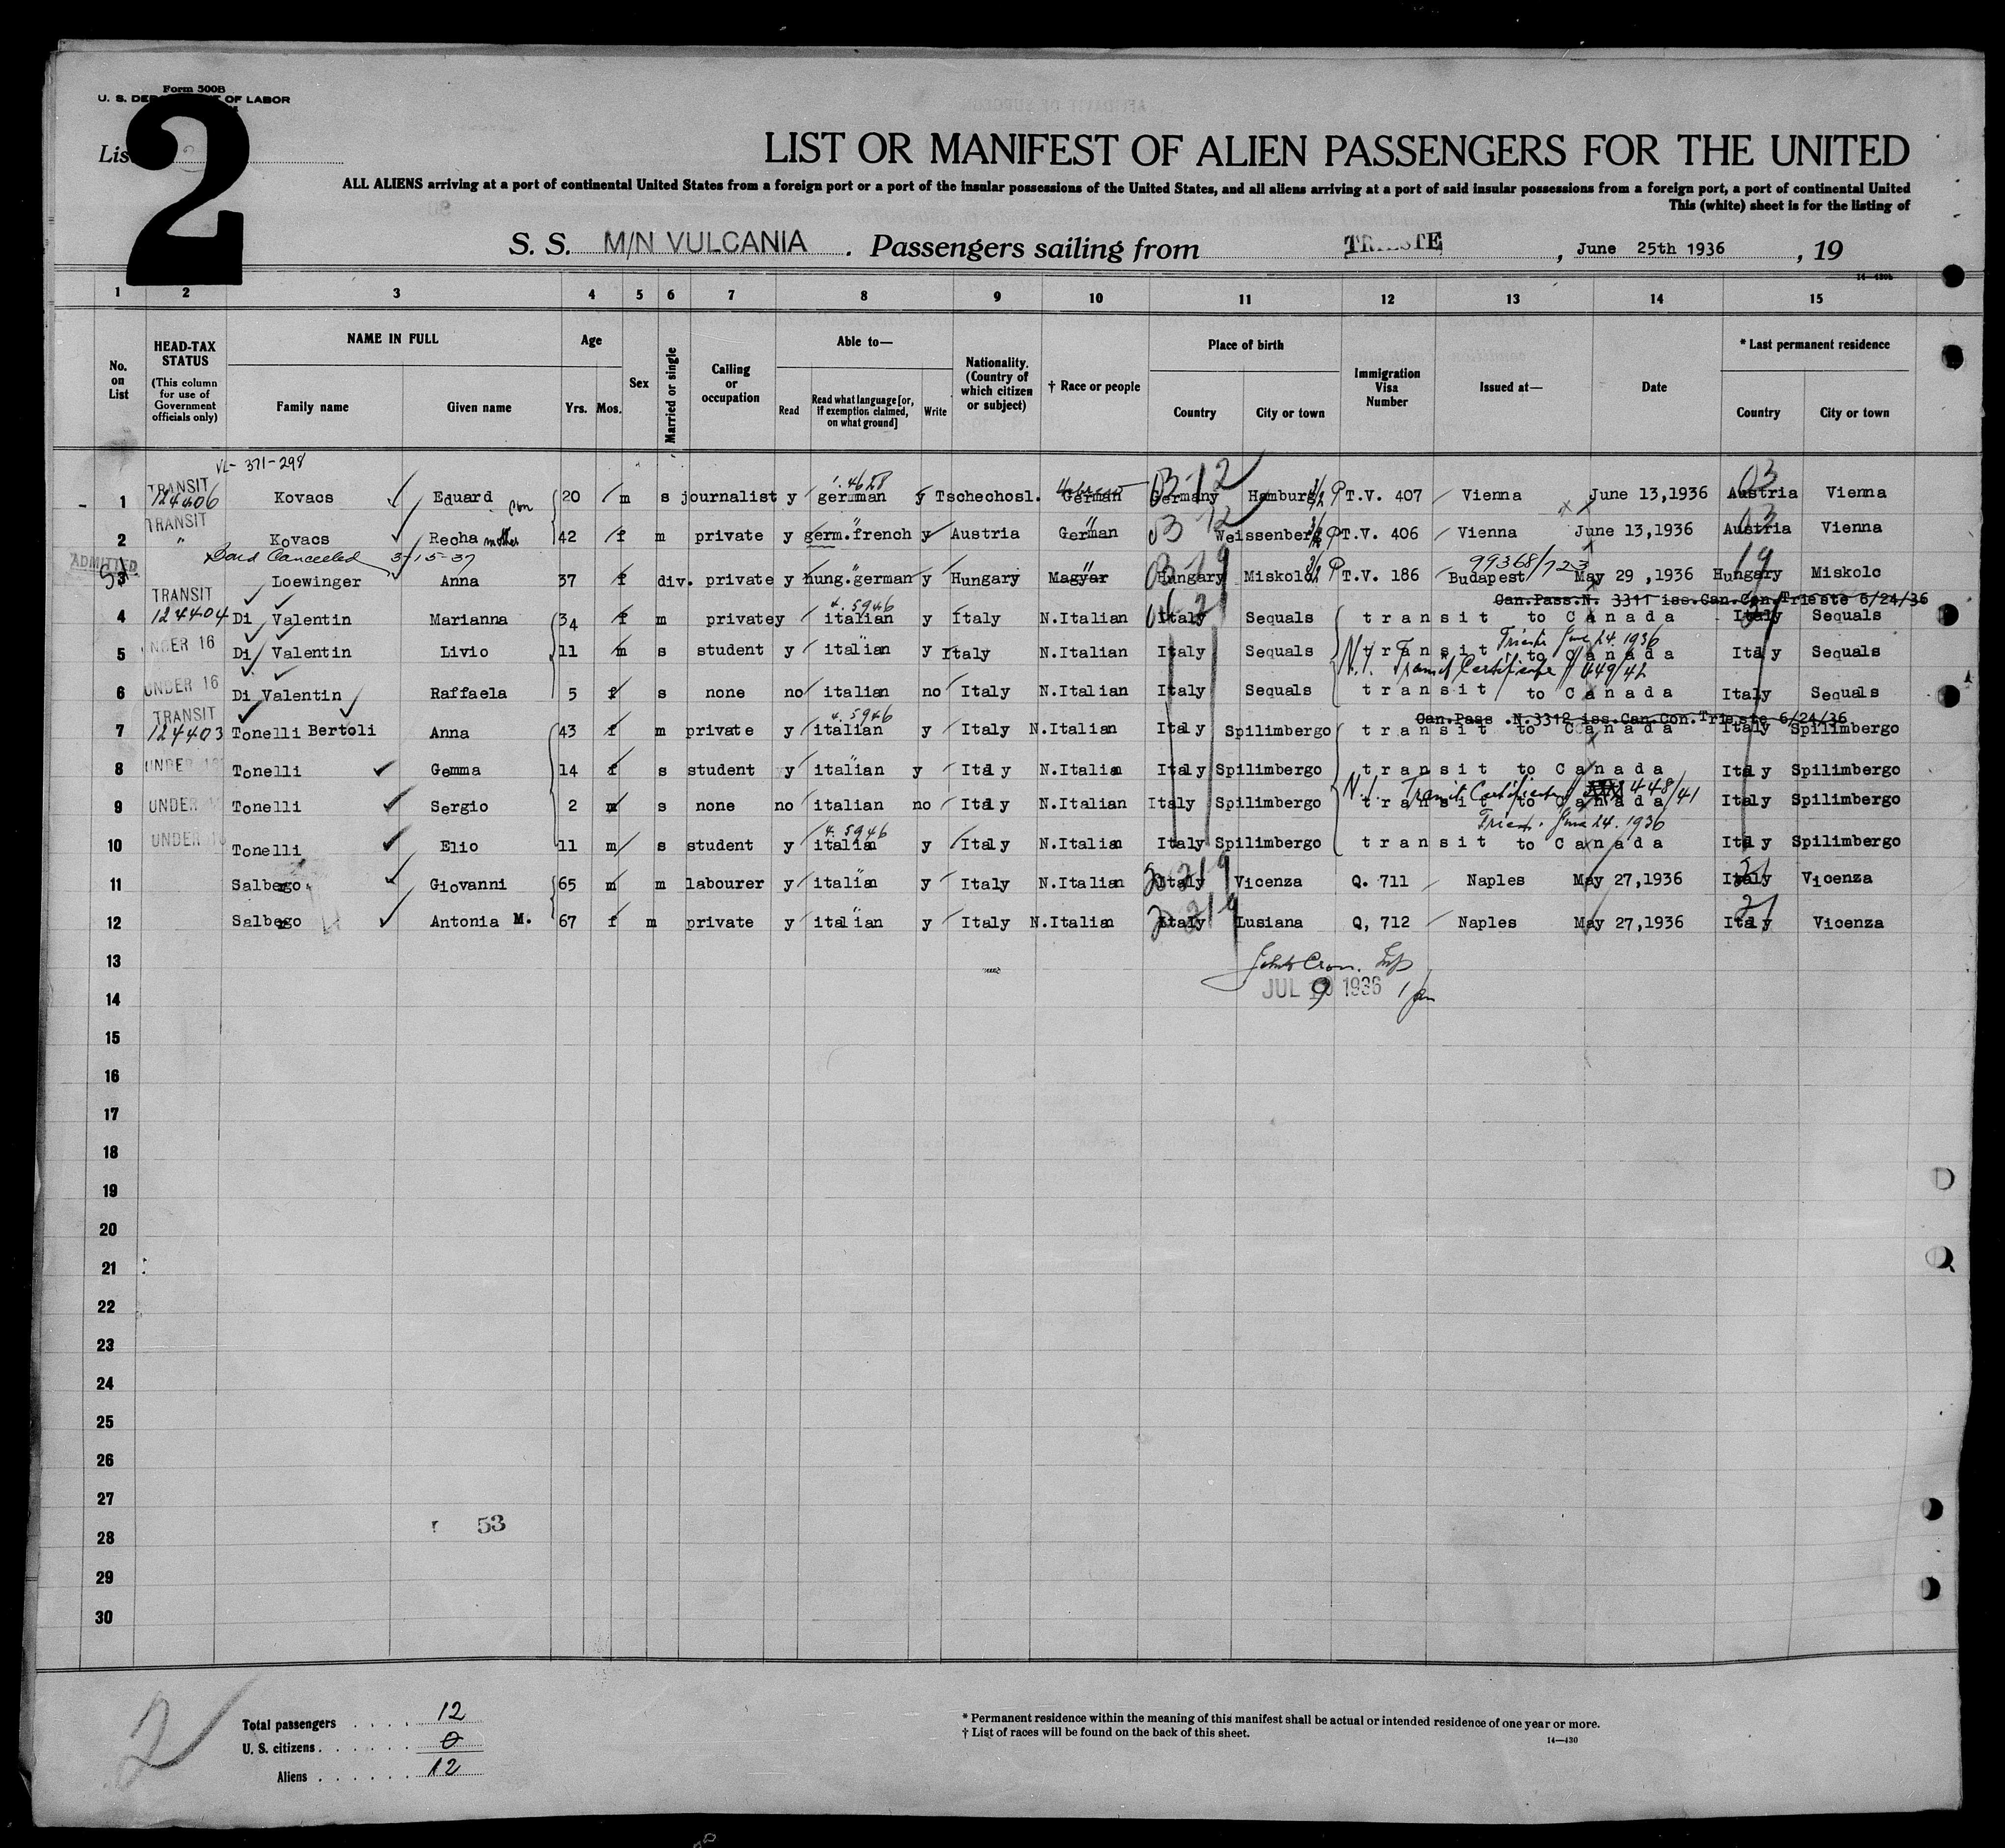 Form 500B
U. S. DEP OF LABOR
2
LIST OR MANIFEST OF ALIEN PASSENGERS FOR THE UNITED
ALL ALIENS arriving at a port of continental United States from a foreign port or a port of the insular possessions of the United States, and all aliens arriving at a port of said insular possessions from a foreign port, a port of continental United
This (white) sheet is for the listing of
S. S. M/N VULCANIA . Passengers sailing from TRIESTE , June 25th 1936 , 19
14—430b
1 2 3 4 5 6 7 8 9 10 11 12 13 14 15
No. on List
HEAD-TAX STATUS (This column for use of Government officials only)
NAME IN FULL
Family name Given name
Age
Yrs. Mos.
Sex
Married or single
Calling or occupation
Able to—
Read Read what language [or, if exemption claimed, on what ground] Write
Nationality. (Country of which citizen or subject)
† Race or people
Place of birth
Country City or town
Immigration Visa Number
Issued at—
Date
* Last permanent residence
Country City or town
VL- 371-298
1.4628
1 TRANSIT 124406 Kovacs Eduard son 20 m s journalist y german y Tschechosl. German Hebrew Germany 03-12 Hamburg P T.V. 407 Vienna June 13,1936 Austria 03 Vienna
2 TRANSIT " Kovacs Recha mother 42 f m private y germ.french y Austria German " 03 12 Weissenberg P T.V. 406 Vienna June 13,1936 Austria 03 Vienna
Bond Cancelled 3-15-37
99368/723
ADMITTED
3 Loewinger Anna 37 f div. private y hung.german y Hungary Magyar " Hungary 03-19 Miskolc P T.V. 186 Budapest May 29 ,1936 Hungary 19 Miskolc
Can.Pass.N. 3311 iss.Can.Con.Trieste 6/24/36
4.5946
4 TRANSIT 124404 Di Valentin Marianna 34 f m private y italian y Italy N.Italian Italy Sequals transit to Canada Italy Sequals
Trieste June 24. 1936
5 UNDER 16 Di Valentin Livio 11 m s student y italian y Italy N.Italian Italy Sequals transit to Canada Italy Sequals
N.Y. Transit Certificate # 449/42
6 UNDER 16 Di Valentin Raffaela 5 f s none no italian no Italy N.Italian Italy Sequals transit to Canada Italy Sequals
Can.Pass .N.3312 iss.Can.Con.Trieste 6/24/36
4.5946
7 TRANSIT 124403 Tonelli Bertoli Anna 43 f m private y italian y Italy N.Italian Italy Spilimbergo transit to Canada Italy Spilimbergo
8 UNDER 16 Tonelli Gemma 14 f s student y italian y Italy N.Italian Italy Spilimbergo transit to Canada Italy Spilimbergo
N.Y. Transit Certificate 448/41
9 UNDER Tonelli Sergio 2 m s none no italian no Italy N.Italian Italy Spilimbergo transit to Canada Italy Spilimbergo
Trieste June 24. 1936
4.5946
10 UNDER 16 Tonelli Elio 11 m s student y italian y Italy N.Italian Italy Spilimbergo transit to Canada Italy Spilimbergo
11 Salbego Giovanni 65 m m labourer y italian y Italy N.Italian Italy Vicenza Q. 711 Naples May 27,1936 Italy Vicenza
12 Salbego Antonia M. 67 f m private y italian y Italy N.Italian Italy Lusiana Q, 712 Naples May 27,1936 Italy Vicenza
13
JUL 9 1936
14
15
16
17
18
19
20
21
22
23
24
25
26
27
53
28
29
30
2
Total passengers . . . . 12
U. S. citizens . . . . . . 0
Aliens . . . . . . 12
* Permanent residence within the meaning of this manifest shall be actual or intended residence of one year or more.
† List of races will be found on the back of this sheet.
14—430